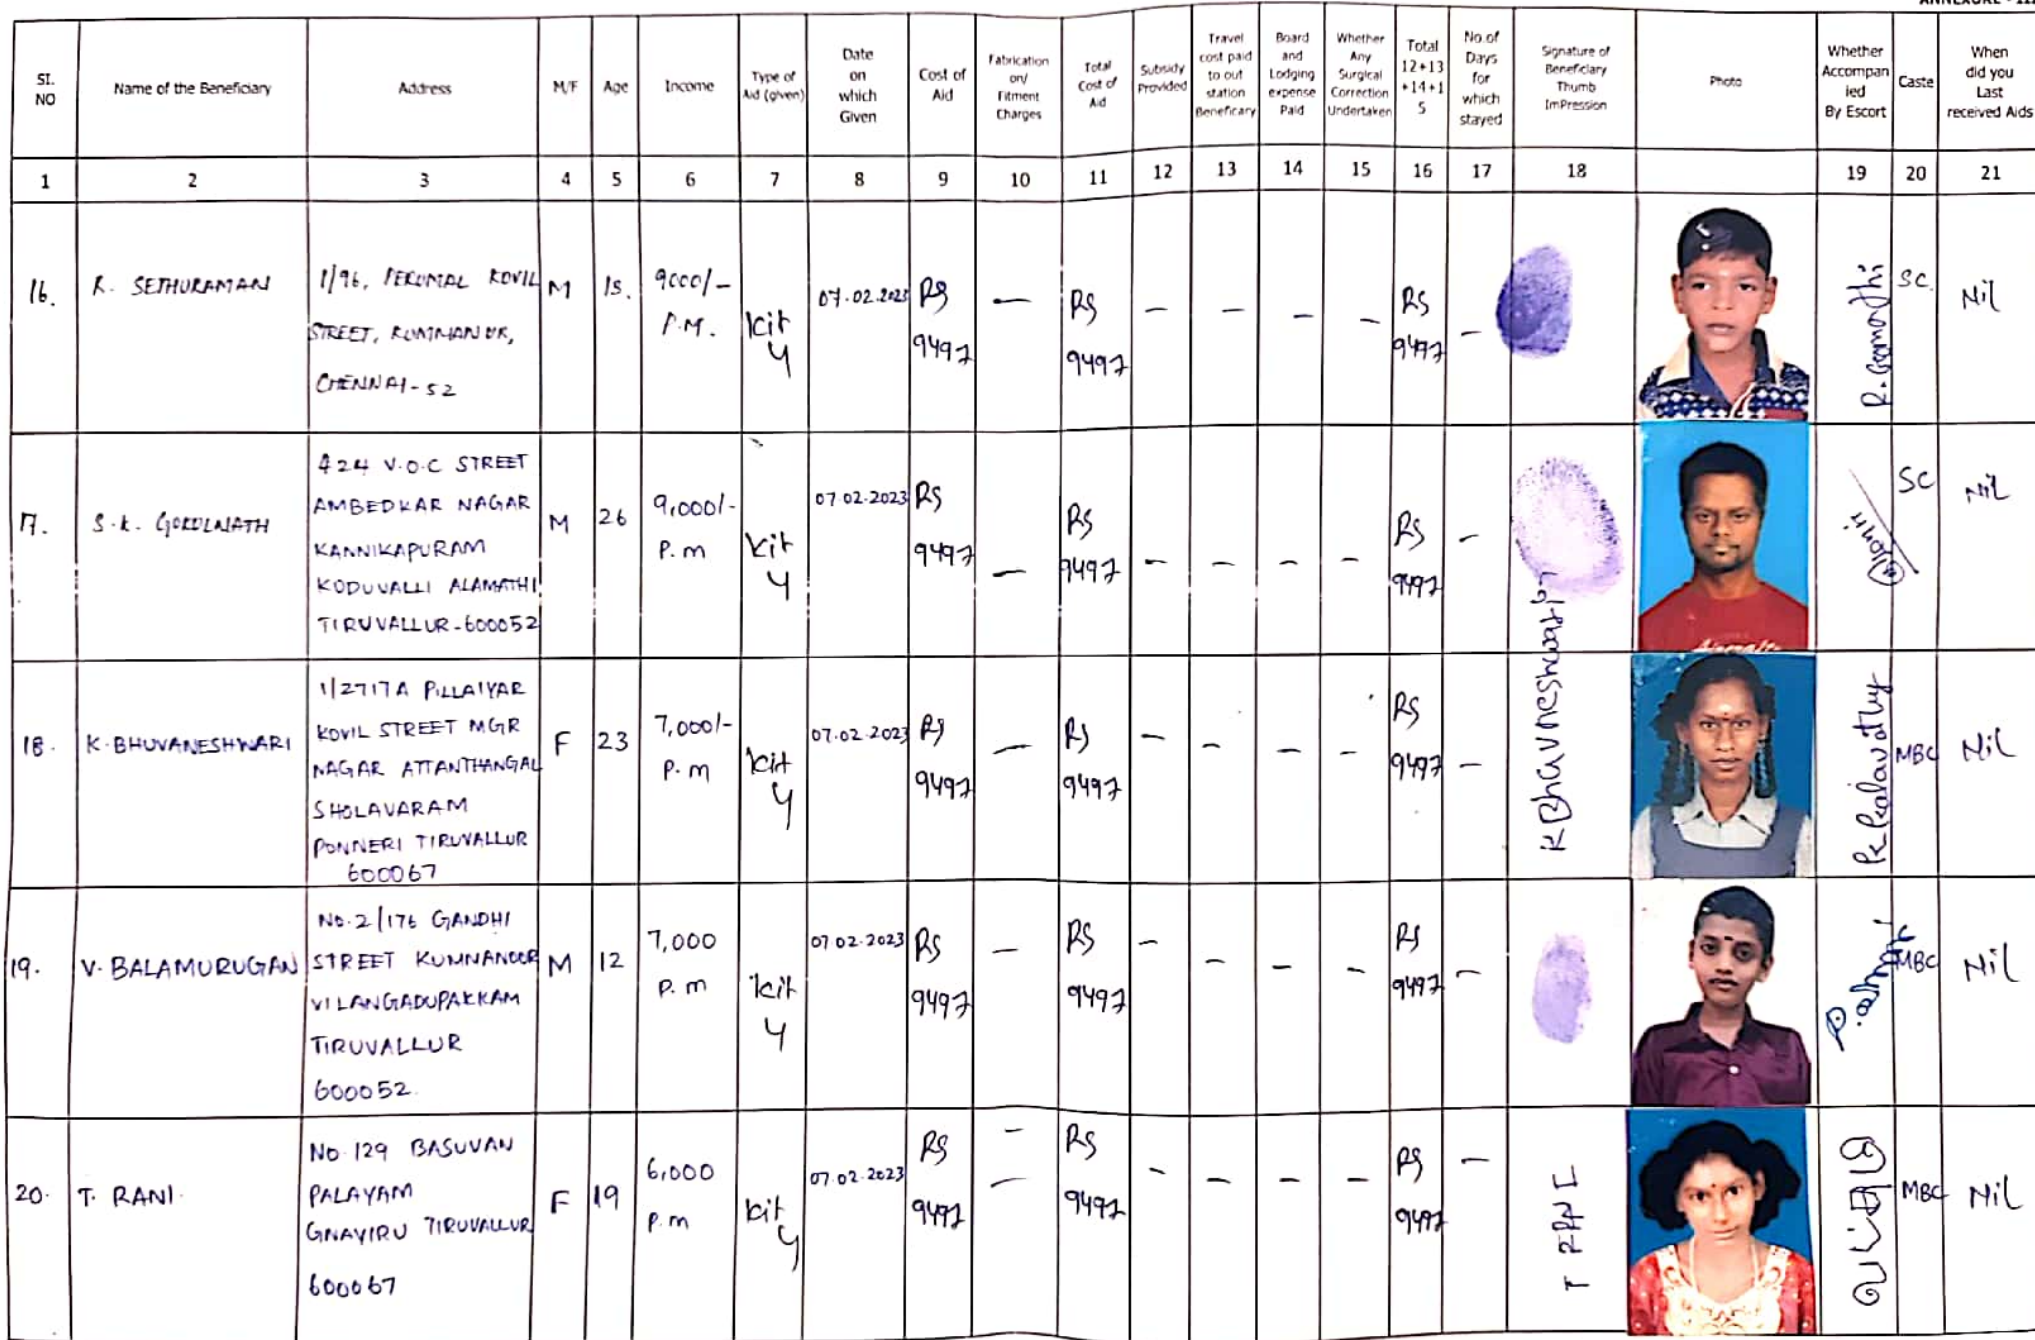 SI. NO
Name of the Beneficiary
Address
M/F
Age
Income
Type of Aid (given)
Date on which Given
Cost of Aid
Fabrication on/ Fitment Charges
Total Cost of Aid
Subsidy Provided
Travel cost paid to out station Beneficary
Board and Lodging expense Paid
Whether Any Surgical Correction Undertaken
Total 12+13 +14+1 5
No.of Days for which stayed
Signature of Beneficiary Thumb ImPression
Photo
Whether Accompan ied By Escort
Caste
When did you Last received Aids
1 2 3 4 5 6 7 8 9 10 11 12 13 14 15 16 17 18 19 20 21
16. R. SETHURAMAN
1/96, PERUMAL KOVIL
STREET, KUMMANUR,
CHENNAI-52
M
9000/-
P.M.
Kit
4
07.02.2023
Rs
9497
—
Rs
9497
–
–
–
–
Rs
9497
–
SC
Nil
17. S.K. GOKULNATH
424 V.O.C STREET
AMBEDKAR NAGAR
KANNIKAPURAM
KODUVALLI ALAMATHI
TIRUVALLUR-600052
M
26
9,000/-
P.m
Kit
4
07.02.2023
Rs
9497
—
Rs
9497
–
–
–
–
Rs
9497
–
SC
Nil
18. K.BHUVANESHWARI
1/2717A PILLAIYAR
KOVIL STREET MGR
NAGAR ATTANTHANGAL
SHOLAVARAM
PONNERI TIRUVALLUR
600067
F
23
7,000/-
P.m
Kit
4
07.02.2023
Rs
9497
—
Rs
9497
–
–
–
–
Rs
9497
–
K Bhuvneshwari
MBC
Nil
19. V. BALAMURUGAN
NO.2/176 GANDHI
STREET KUMNANOOR
VILANGADUPAKKAM
TIRUVALLUR
600052.
M
12
7,000
P.m
Kit
4
07.02.2023
Rs
9497
–
Rs
9497
–
–
–
–
Rs
9497
–
MBC
Nil
20. T. RANI.
NO.129 BASUVAN
PALAYAM
GNAYIRU TIRUVALLUR
600067
F
19
6,000
P.m
Kit
4
07.02.2023
Rs
9497
–
—
Rs
9497
–
–
–
–
Rs
9497
–
T RANI
MBC
Nil